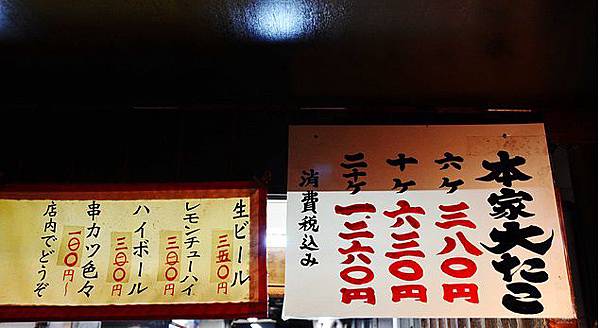 本家大たこ
六ヶ 三八〇円
十ヶ 六三〇円
二十ヶ 一.二六〇円
消費税込み
生ビール 三五〇円
レモンチューハイ 三〇〇円
ハイボール 三〇〇円
串カツ色々 一〇〇円〜
店内でどうぞ